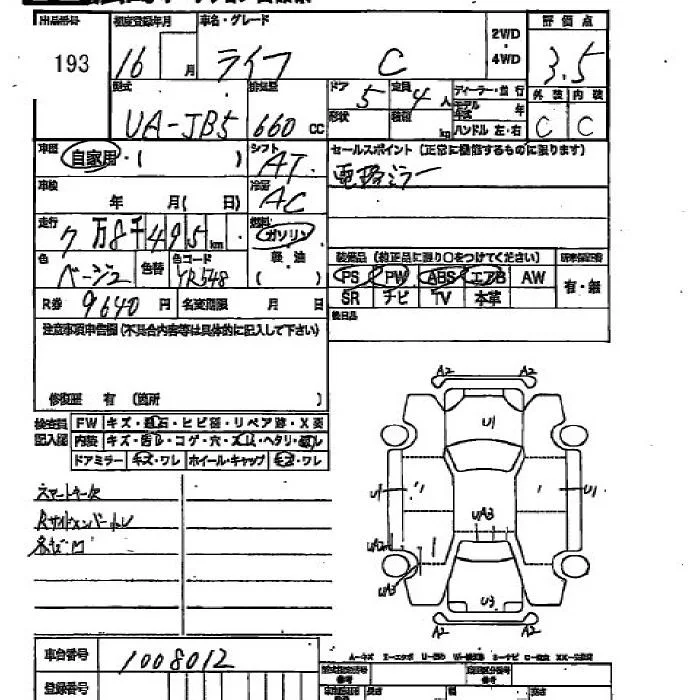 出品番号 初度登録年月 車名・グレード 評価点
193 16 月 ライフ C 2WD・4WD 3.5
型式 排気量 ドア 定員 ディーラー・並行 外装 内装
UA-JB5 660 CC 5 4人 モデル年式 年 C C
形状 積載 kg ハンドル 左・右
車歴 自家用・( ) シフト AT セールスポイント (正常に機能するものに限ります)
車検 年 月( 日) 冷房 AC 電格ミラー
走行 7万8千495km 燃料 ガソリン
色 ベージュ 色替 色コード YR548 軽油 ( )
装備品 (純正品に限り○をつけてください) 新車保証書
PS PW ABS エアB AW 有・無
SR ナビ TV 本革
R券 9640円 名変期限 月 日 後日品
注意事項申告欄(不具合内容等は具体的に記入して下さい)
修復歴 有 (箇所 )
検査員記入欄 FW キズ・飛石・ヒビ・リペア跡・X要
内装 キズ・コゲ・穴・ヘタリ
ドアミラー キズ・ワレ ホイール・キャップ キズ・ワレ
スマートキー欠
A2 A2
U1
U1 1 1 U1
UA3
1
UA3
U3
A2 A2
車台番号 1008012
登録番号